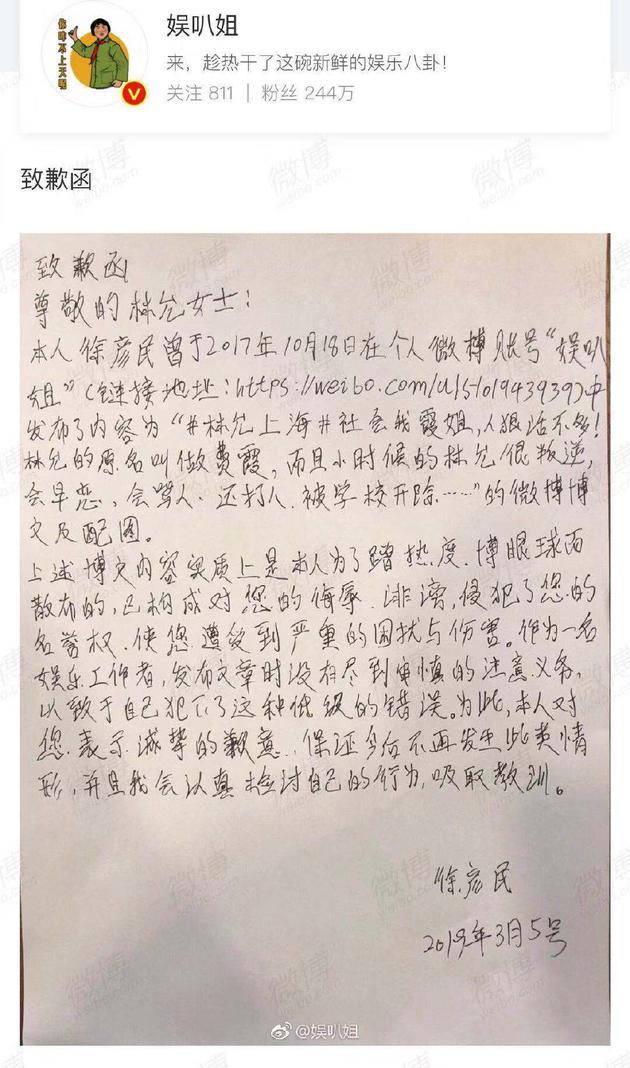 你咋不上天呢
娱叭姐
来，趁热干了这碗新鲜的娱乐八卦！
关注 811 | 粉丝 244万
致歉函
致歉函
尊敬的林允女士：
本人徐彦民曾于2017年10月18日在个人微博账号“娱叭
姐”（链接地址：https://weibo.com/u/5101943939）中
发布了内容为“#林允上海#社会我霞姐，人狠话不多！
林允的原名叫做费霞，而且小时候的林允很叛逆，
会早恋、会骂人、还打人、被学校开除……”的微博博
文及配图。
上述博文内容实质上是本人为了蹭热度、博眼球而
散布的，已构成对您的侮辱、诽谤，侵犯了您的
名誉权、使您遭受到严重的困扰与伤害。作为一名
娱乐工作者，发布文章时没有尽到审慎的注意义务，
以致于自己犯下了这种低级的错误。为此，本人对
您表示诚挚的歉意、保证今后不再发生此类情
形，并且我会认真检讨自己的行为，吸取教训。
徐彦民
2019年3月5号
@娱叭姐
微博
weibo.com